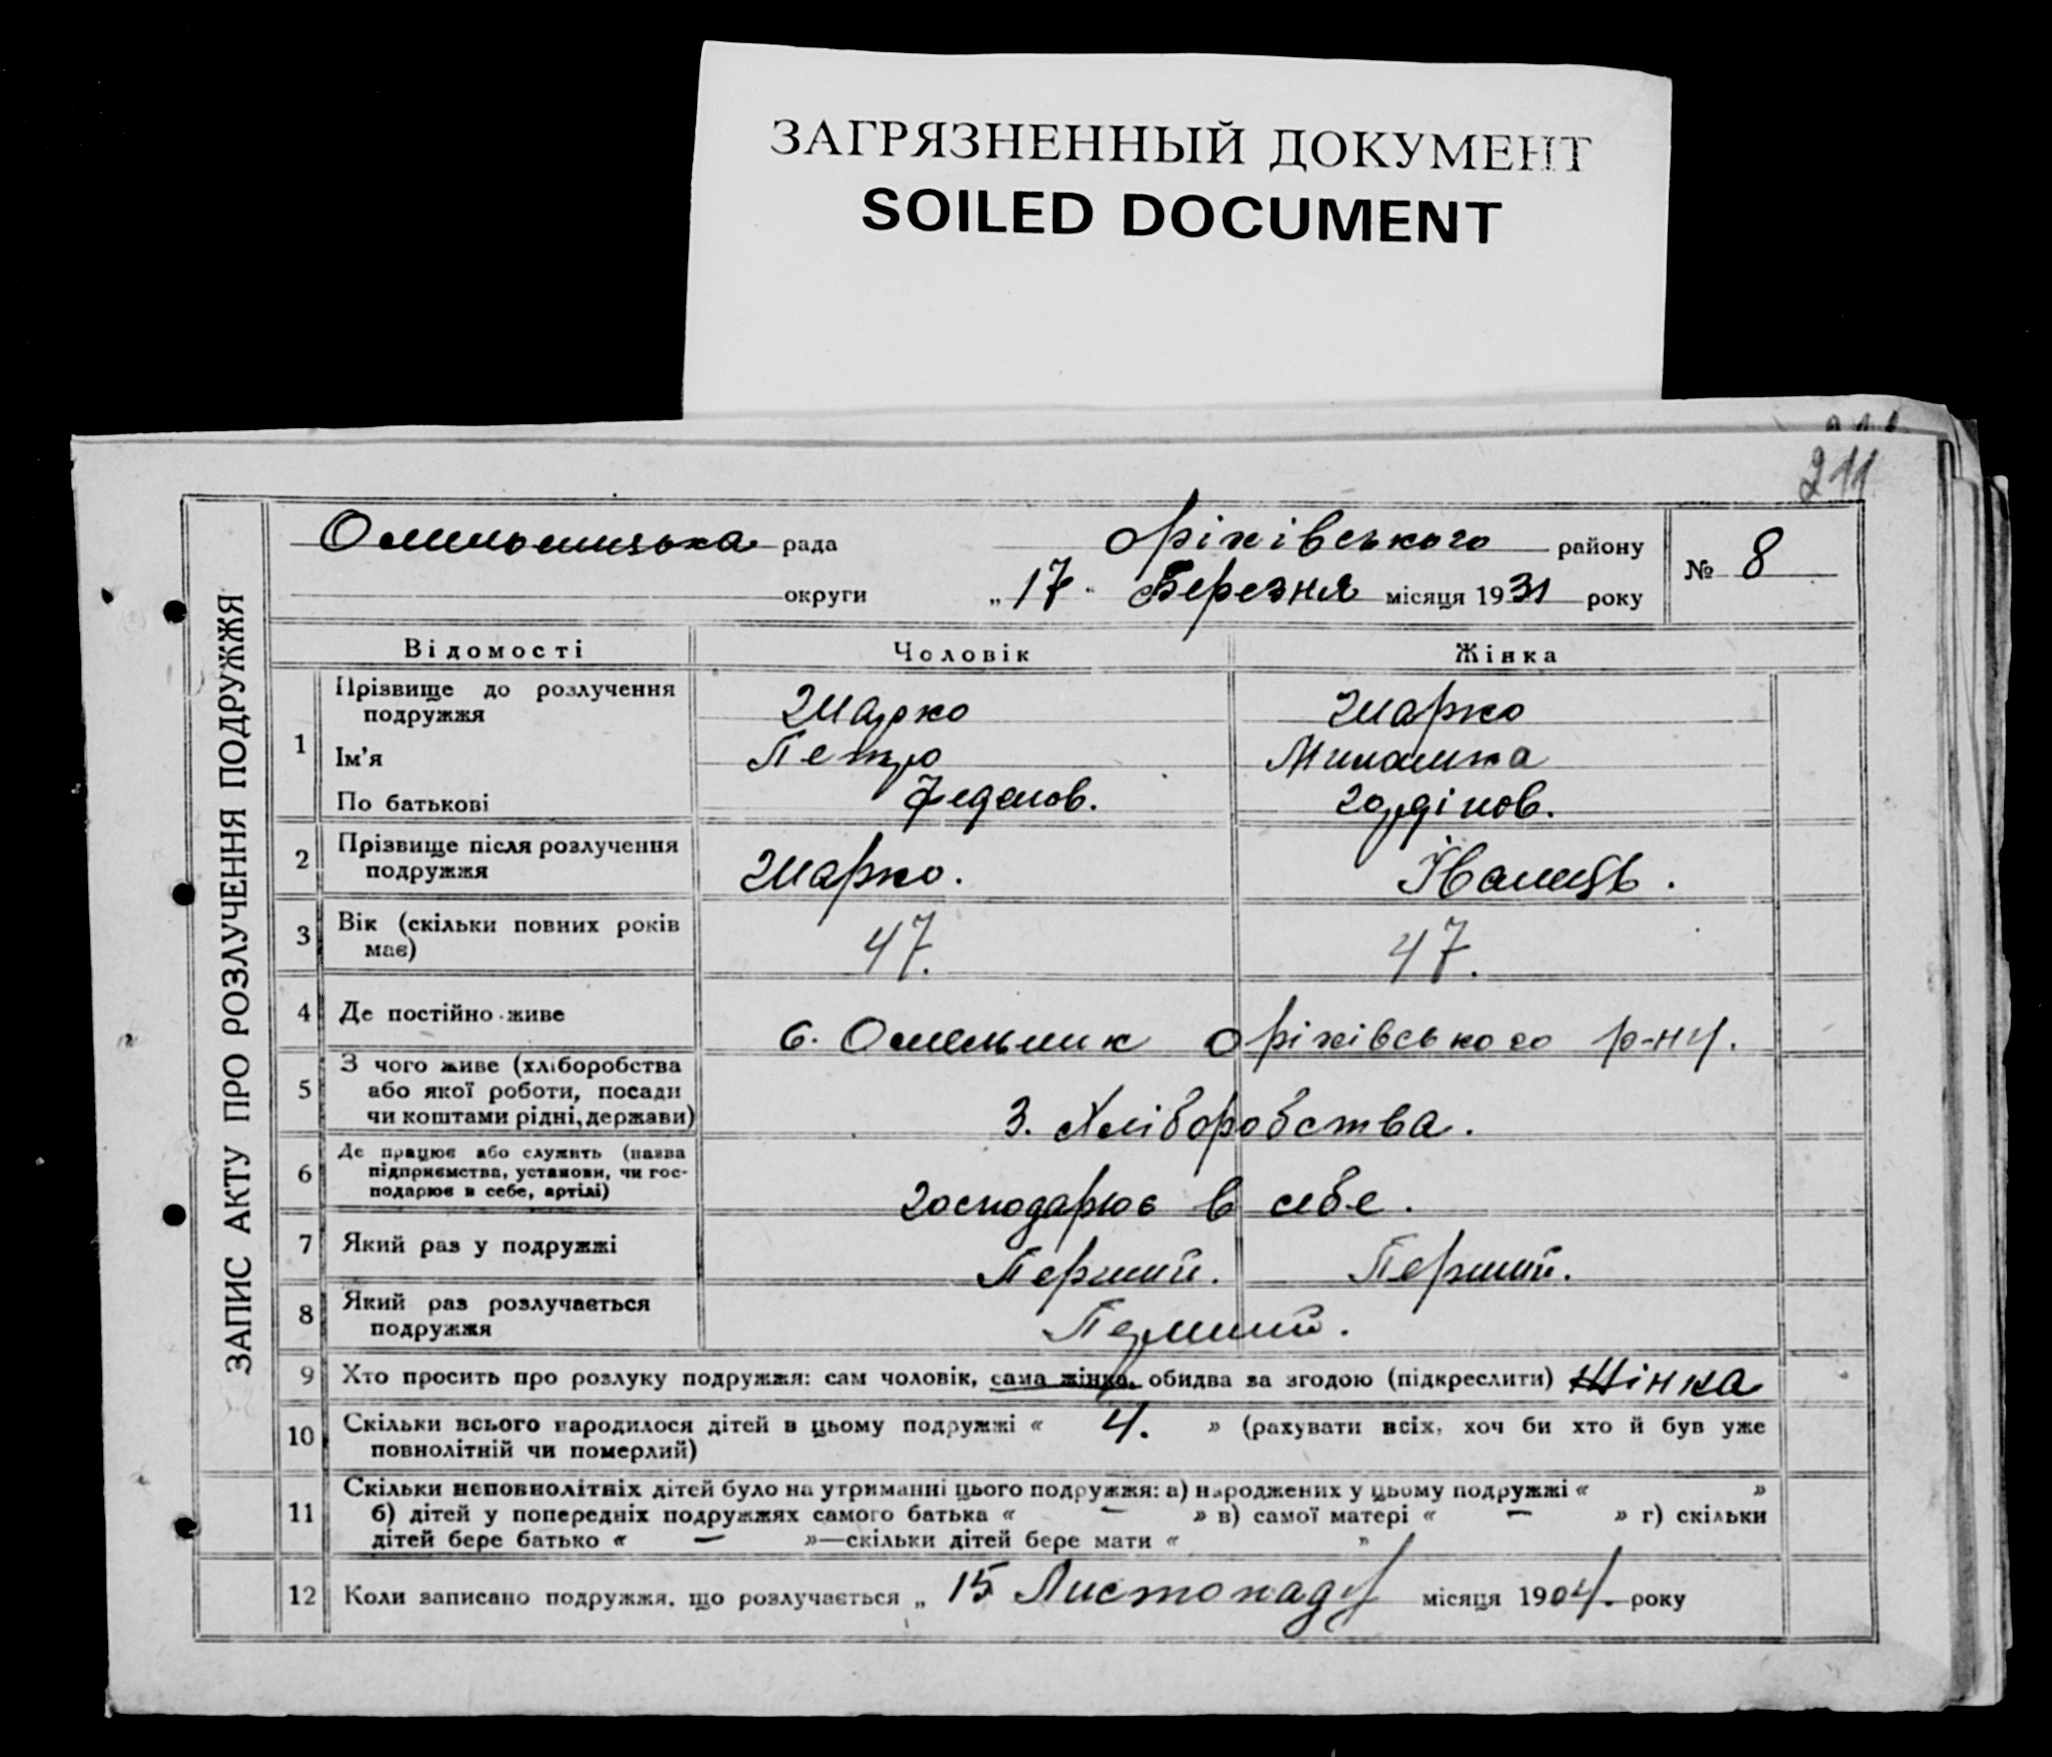 ЗАГРЯЗНЕННЫЙ ДОКУМЕНТ
SOILED DOCUMENT
211
ЗАПИС АКТУ ПРО РОЗЛУЧЕННЯ ПОДРУЖЖЯ
Омельницька рада Оріхівського району № 8
округи „17" Березня місяця 1931 року
Відомості Чоловік Жінка
1 Прізвище до розлучення подружжя Шарко Шарко
Ім'я Петро
По батькові Федоров. Гордіїов.
2 Прізвище після розлучення подружжя Шарко. Іванець.
3 Вік (скільки повних років має) 47. 47.
4 Де постійно живе с. Омельник Оріхівського р-ну.
5 З чого живе (хліборобства
або якої роботи, посади
чи коштами рідні, держави) З. Хліборобства.
6 Де працює або служить (назва
підприємства, установи, чи гос-
подарює в себе, артілі) Господарює в себе.
7 Який раз у подружжі Перший. Перший.
8 Який раз розлучається
подружжя Перший.
9 Хто просить про розлуку подружжя: сам чоловік, сама жінка, обидва за згодою (підкреслити) Жінка
10 Скільки всього народилося дітей в цьому подружжі « 4. » (рахувати всіх, хоч би хто й був уже
повнолітній чи померлий)
11 Скільки неповнолітніх дітей було на утриманні цього подружжя: а) народжених у цьому подружжі « »
б) дітей у попередніх подружжях самого батька « — » в) самої матері « — » г) скільки
дітей бере батько « — »—скільки дітей бере мати « »
12 Коли записано подружжя, що розлучається „ 15 Листопаду місяця 1904. року